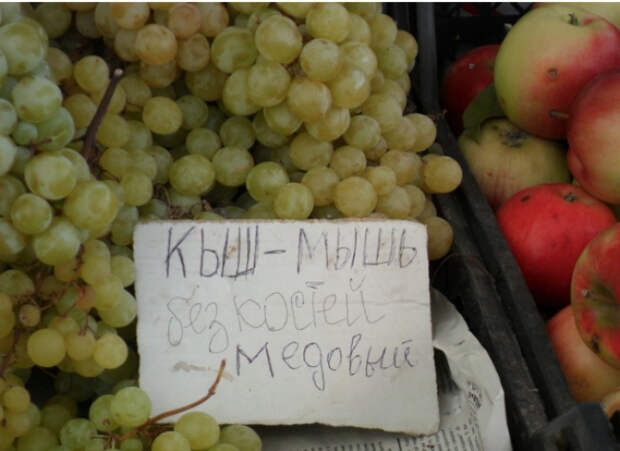 КЫШ-МЫШЬ
без костей
медовый